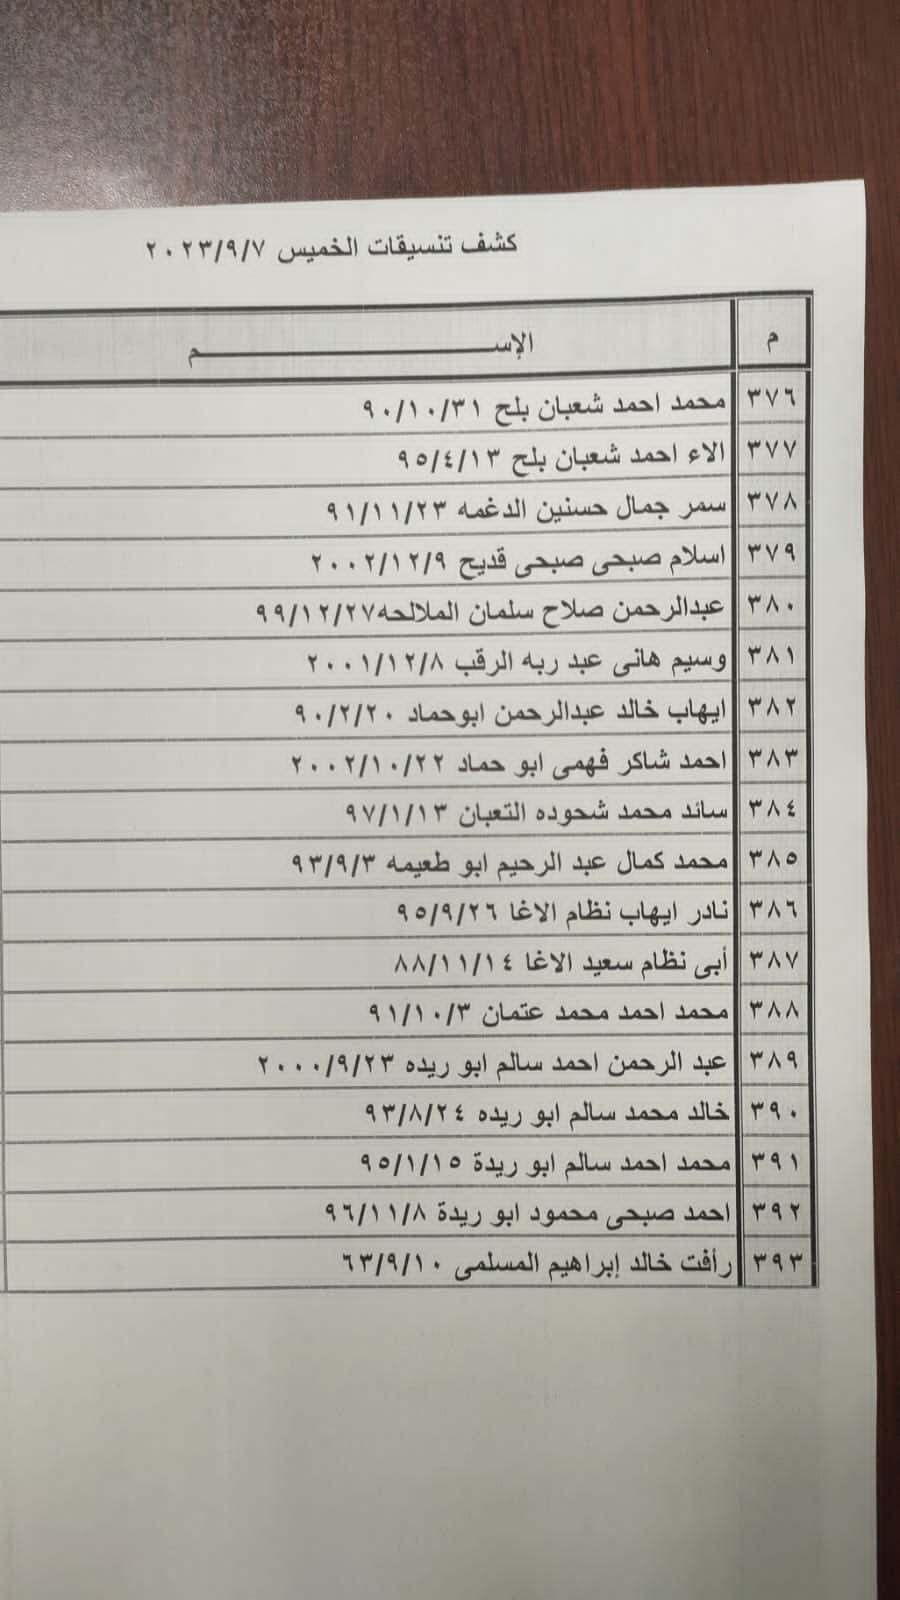 كشف تنسيقات الخميس ٢٠٢٣/٩/٧
م الإســـــــــــــــــــــــم
٣٧٦ محمد احمد شعبان بلح ٩٠/١٠/٣١
٣٧٧ الاء احمد شعبان بلح ٩٥/٤/١٣
٣٧٨ سمر جمال حسنين الدغمه ٩١/١١/٢٣
٣٧٩ اسلام صبحى صبحى قديح ٢٠٠٢/١٢/٩
٣٨٠ عبدالرحمن صلاح سلمان الملالحه٩٩/١٢/٢٧
٣٨١ وسيم هانى عبد ربه الرقب ٢٠٠١/١٢/٨
٣٨٢ ايهاب خالد عبدالرحمن ابوحماد ٩٠/٢/٢٠
٣٨٣ احمد شاكر فهمى ابو حماد ٢٠٠٢/١٠/٢٢
٣٨٤ سائد محمد شحوده التعبان ٩٧/١/١٣
٣٨٥ محمد كمال عبد الرحيم ابو طعيمه ٩٣/٩/٣
٣٨٦ نادر ايهاب نظام الاغا ٩٥/٩/٢٦
٣٨٧ أبى نظام سعيد الاغا ٨٨/١١/١٤
٣٨٨ محمد احمد محمد عتمان ٩١/١٠/٣
٣٨٩ عبد الرحمن احمد سالم ابو ريده ٢٠٠٠/٩/٢٣
٣٩٠ خالد محمد سالم ابو ريده ٩٣/٨/٢٤
٣٩١ محمد احمد سالم ابو ريدة ٩٥/١/١٥
٣٩٢ احمد صبحى محمود ابو ريدة ٩٦/١١/٨
٣٩٣ رأفت خالد إبراهيم المسلمى ٦٣/٩/١٠